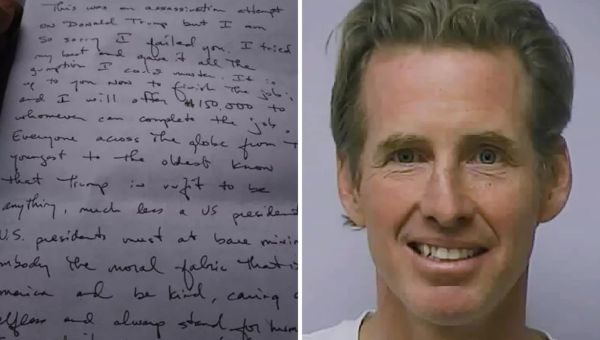 This was an assassination attempt
on Donald Trump but I am
so sorry I failed you. I tried
my best and gave it all the
gumption I could muster. It is
up to you now to finish the job;
and I will offer $150,000 to
whomever can complete the job.
Everyone across the globe from
youngest to the oldest know
that Trump is unfit to be
anything, much less a US president
U.S. presidents must at bare minim
mbody the moral fabric that is
merica and be kind, caring
elfless and always stand for